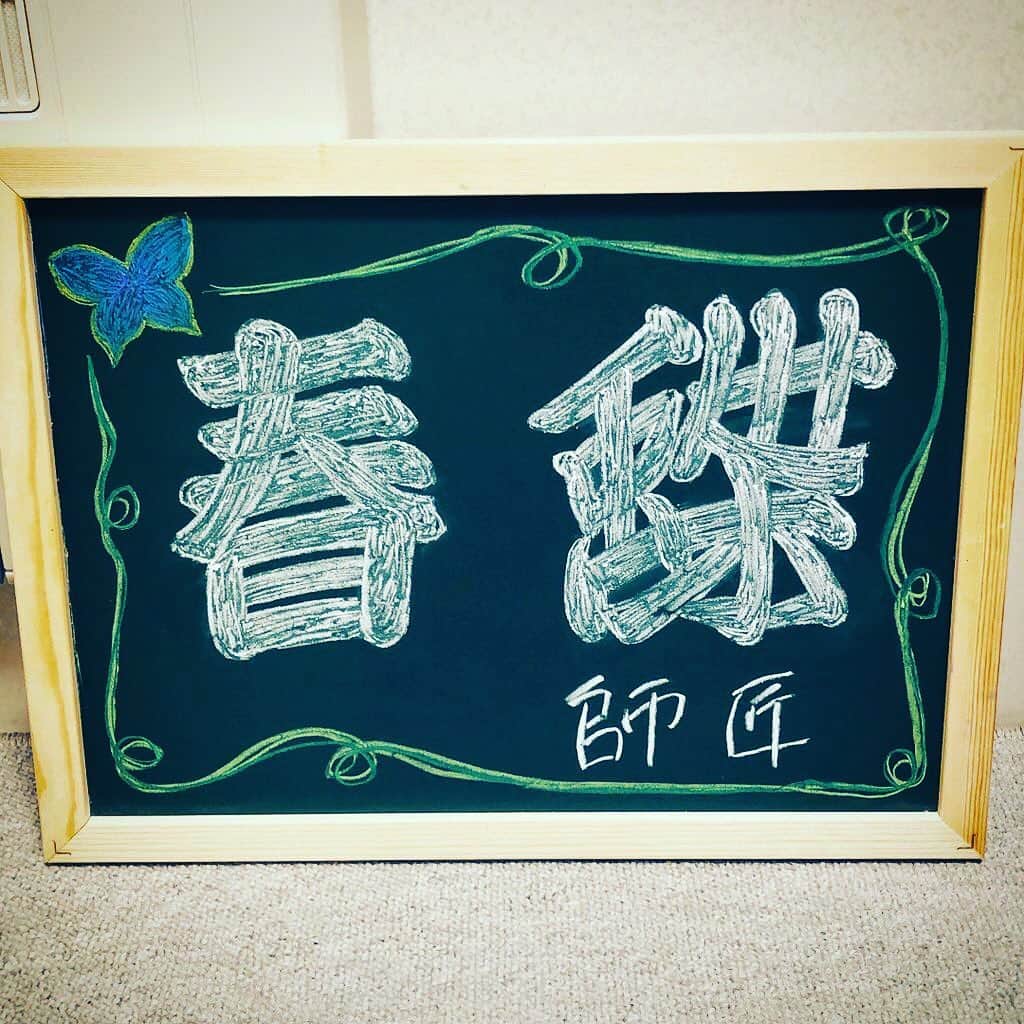 春蝶
師匠